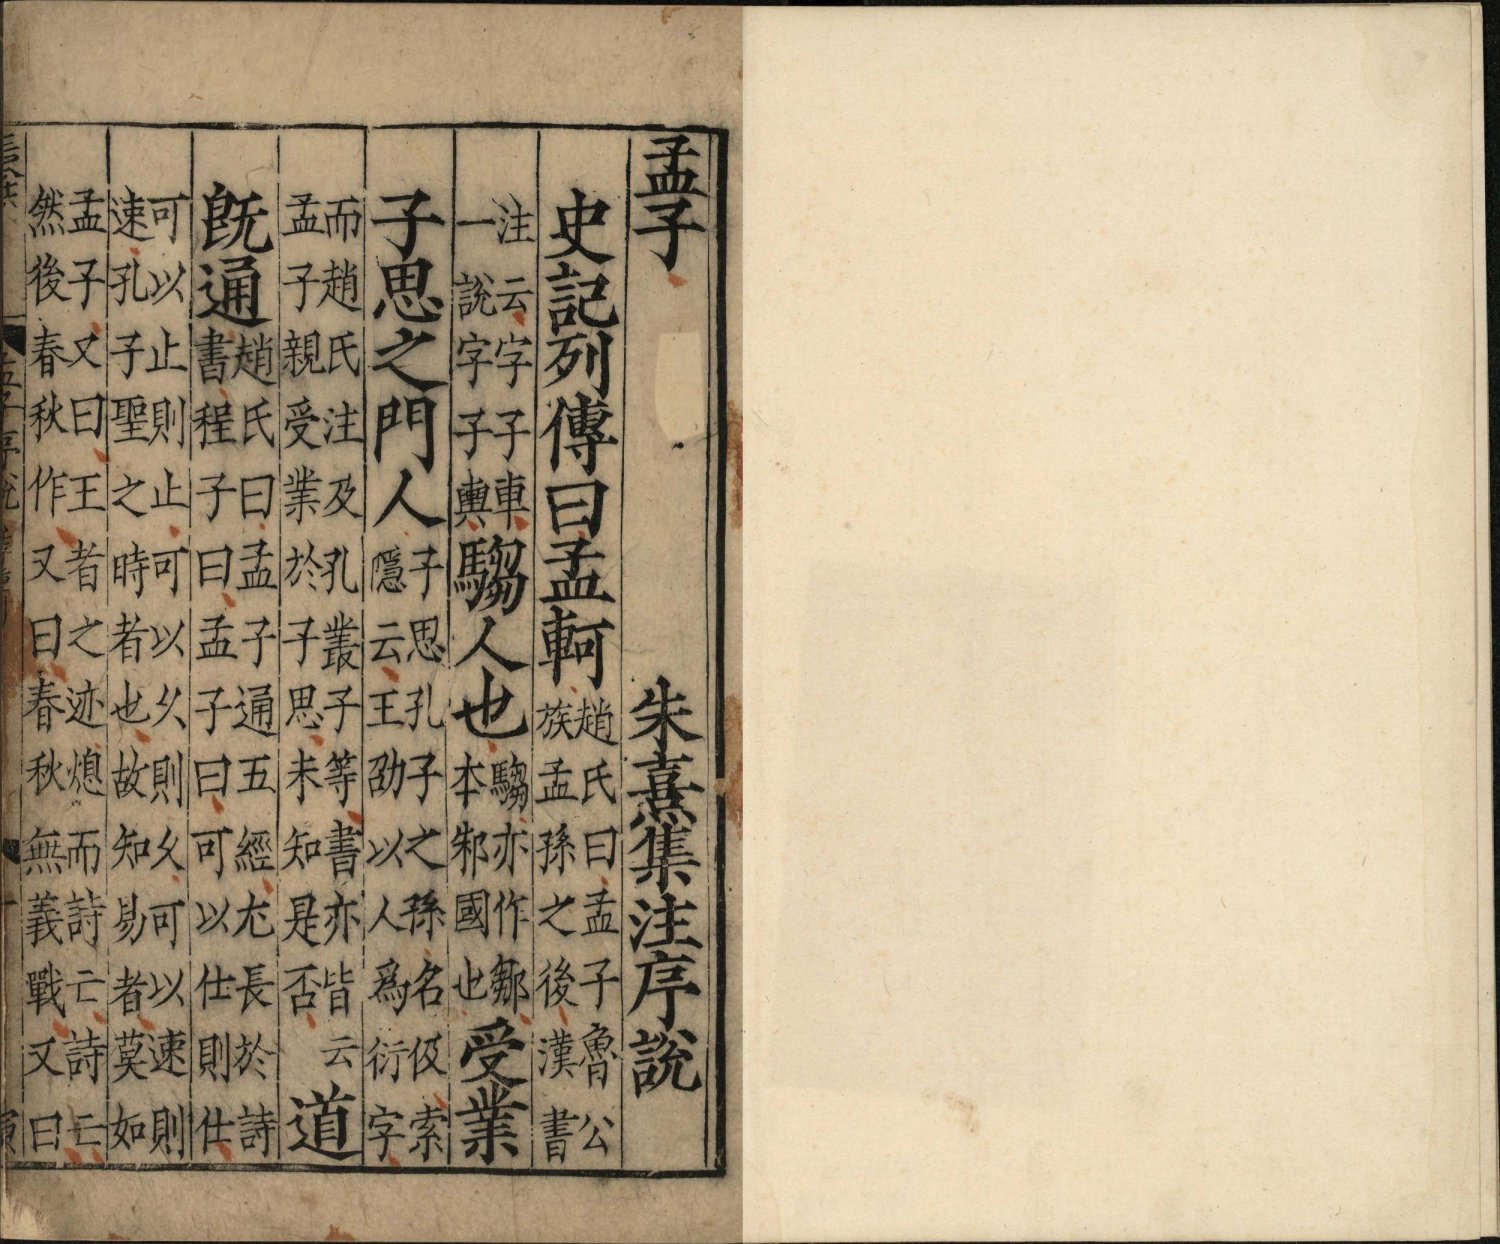 孟子　朱熹集注序說
史記列傳曰孟軻趙氏曰孟子魯公族孟孫之後漢書
注云字子車一說字子輿騶人也騶亦作鄒本邾國也受業
子思之門人子思孔子之孫名伋索隱云王劭以人爲衍字
而趙氏注及孔叢子等書亦皆云孟子親受業於子思未知是否道
旣通趙氏曰孟子通五經尤長於詩書程子曰孟子曰可以仕則仕
可以止則止可以久則久可以速則速孔子聖之時者也故知易者莫如
孟子又曰王者之迹熄而詩亡詩亡然後春秋作又曰春秋無義戰又曰